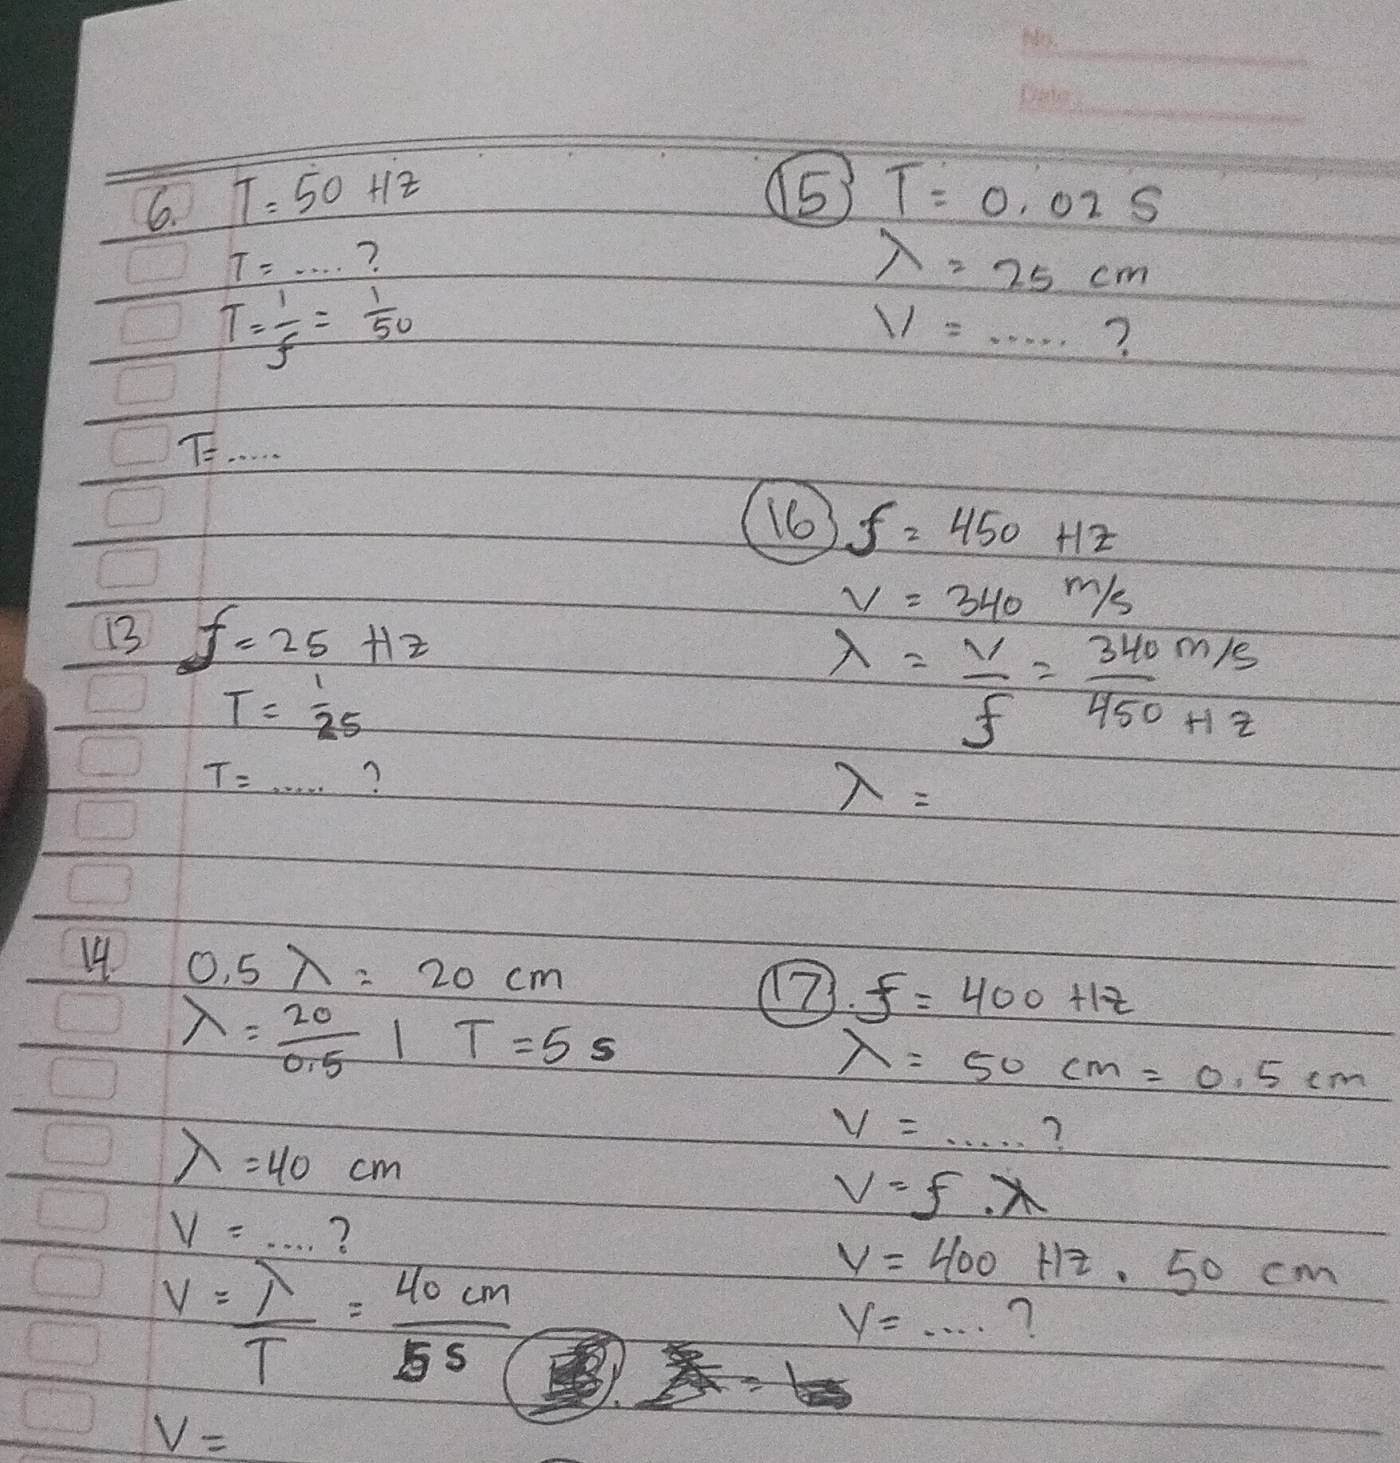 No.
Date
6. T = 50 Hz
T = ....?
T = 1/f = 1/50
T = .....
13 f = 25 Hz
T = 1/25
T = ..... ?
14. 0.5 λ = 20 cm
λ = 20/0.5 | T = 5 s
λ = 40 cm
V = ....?
V = λ/T = 40 cm/5 s
V =
15) T = 0.02 S
λ = 25 cm
V = ..... ?
16) f = 450 Hz
V = 340 m/s
λ = V/f = 340 m/s/450 Hz
λ =
17). f = 400 Hz
λ = 50 cm = 0.5 cm
V = ..... ?
V = f . λ
V = 400 Hz . 50 cm
V = .... ?